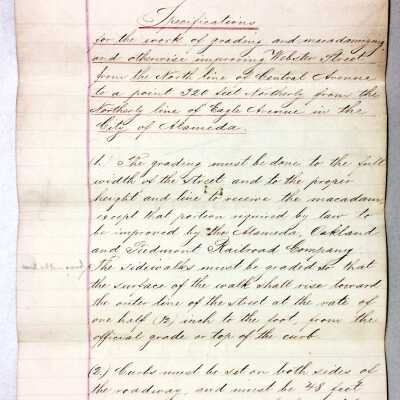 Specifications
for the work of grading and macadamizing
and otherwise improving Webster Street
from the North line of Central Avenue
to a point 320 feet Northerly from the
Northerly line of Eagle Avenue in the
City of Alameda.
(1.) The grading must be done to the full
width of the street and to the proper
height and line to receive the macadam,
except that portion required by law to
be improved by the Alameda, Oakland
and Piedmont Railroad Company.
The sidewalks must be graded so that
the surface of the walk shall rise toward
the outer line of the street at the rate of
one half (½) inch to the foot, from the
official grade or top of the curb
(2.) Curbs must be set on both sides of
the roadway, and must be 48 feet